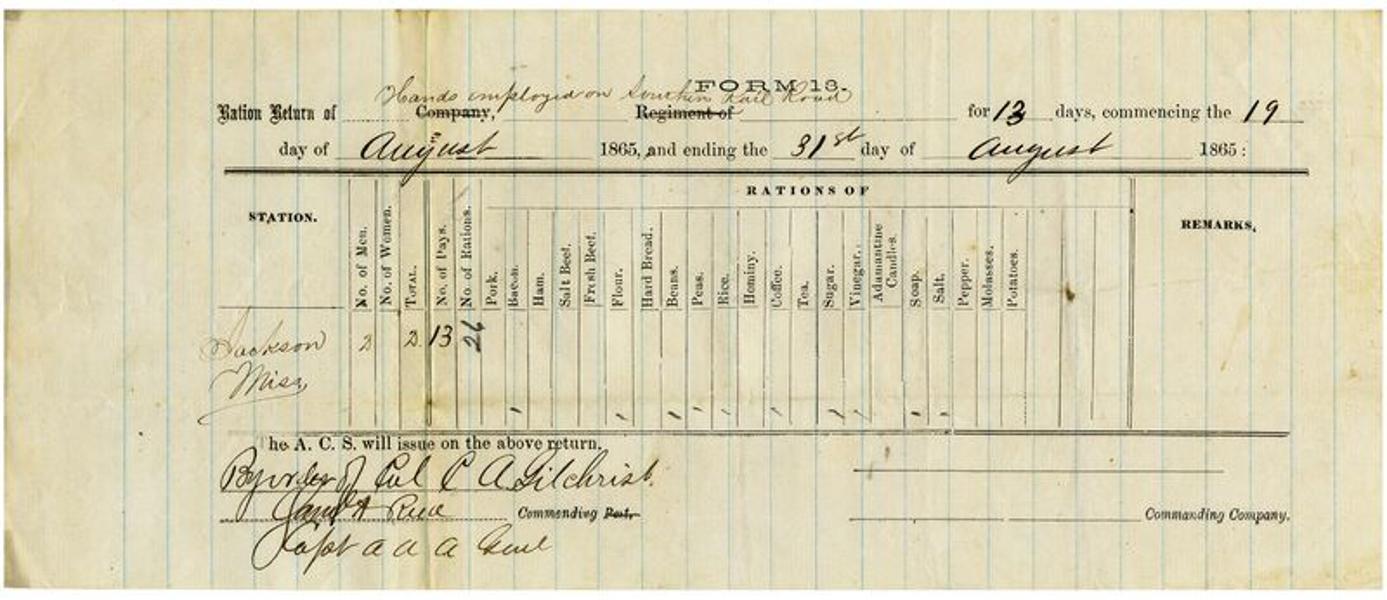 FORM 13.
Hands employed on Southern Rail Road
Ration Return of Company, Regiment of for 13 days, commencing the 19
day of August 1865, and ending the 31st day of August 1865:
RATIONS OF
STATION.
No. of Men.
No. of Women.
TOTAL.
No. of Days.
No. of Rations.
Pork.
Bacon.
Ham.
Salt Beef.
Fresh Beef.
Flour.
Hard Bread.
Beans.
Peas.
Rice.
Hominy.
Coffee.
Tea.
Sugar.
Vinegar.
Adamantine Candles.
Soap.
Salt.
Pepper.
Molasses.
Potatoes.
REMARKS.
Jackson 2 2 13 26
Miss,
The A. C. S. will issue on the above return.
By order of Col C A Gilchrist.
Commending Post.
Commanding Company.
Capt a a a Genl